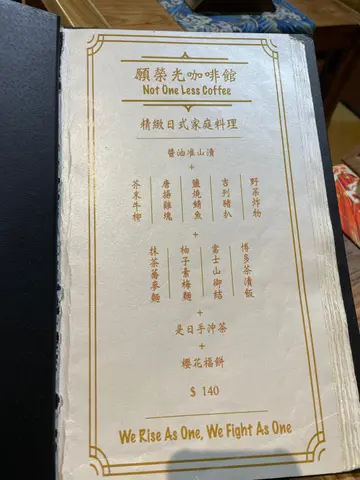 願榮光咖啡館
Not One Less Coffee
精緻日式家庭料理
醬油准山漬
+
野菜炸物
吉列豬扒
鹽燒鯖魚
唐揚雞塊
芥末牛柳
+
博多茶漬飯
富士山御結
柚子素梅麵
抹茶蕎麥麵
+
是日手沖茶
+
櫻花福餅
$ 140
We Rise As One, We Fight As One